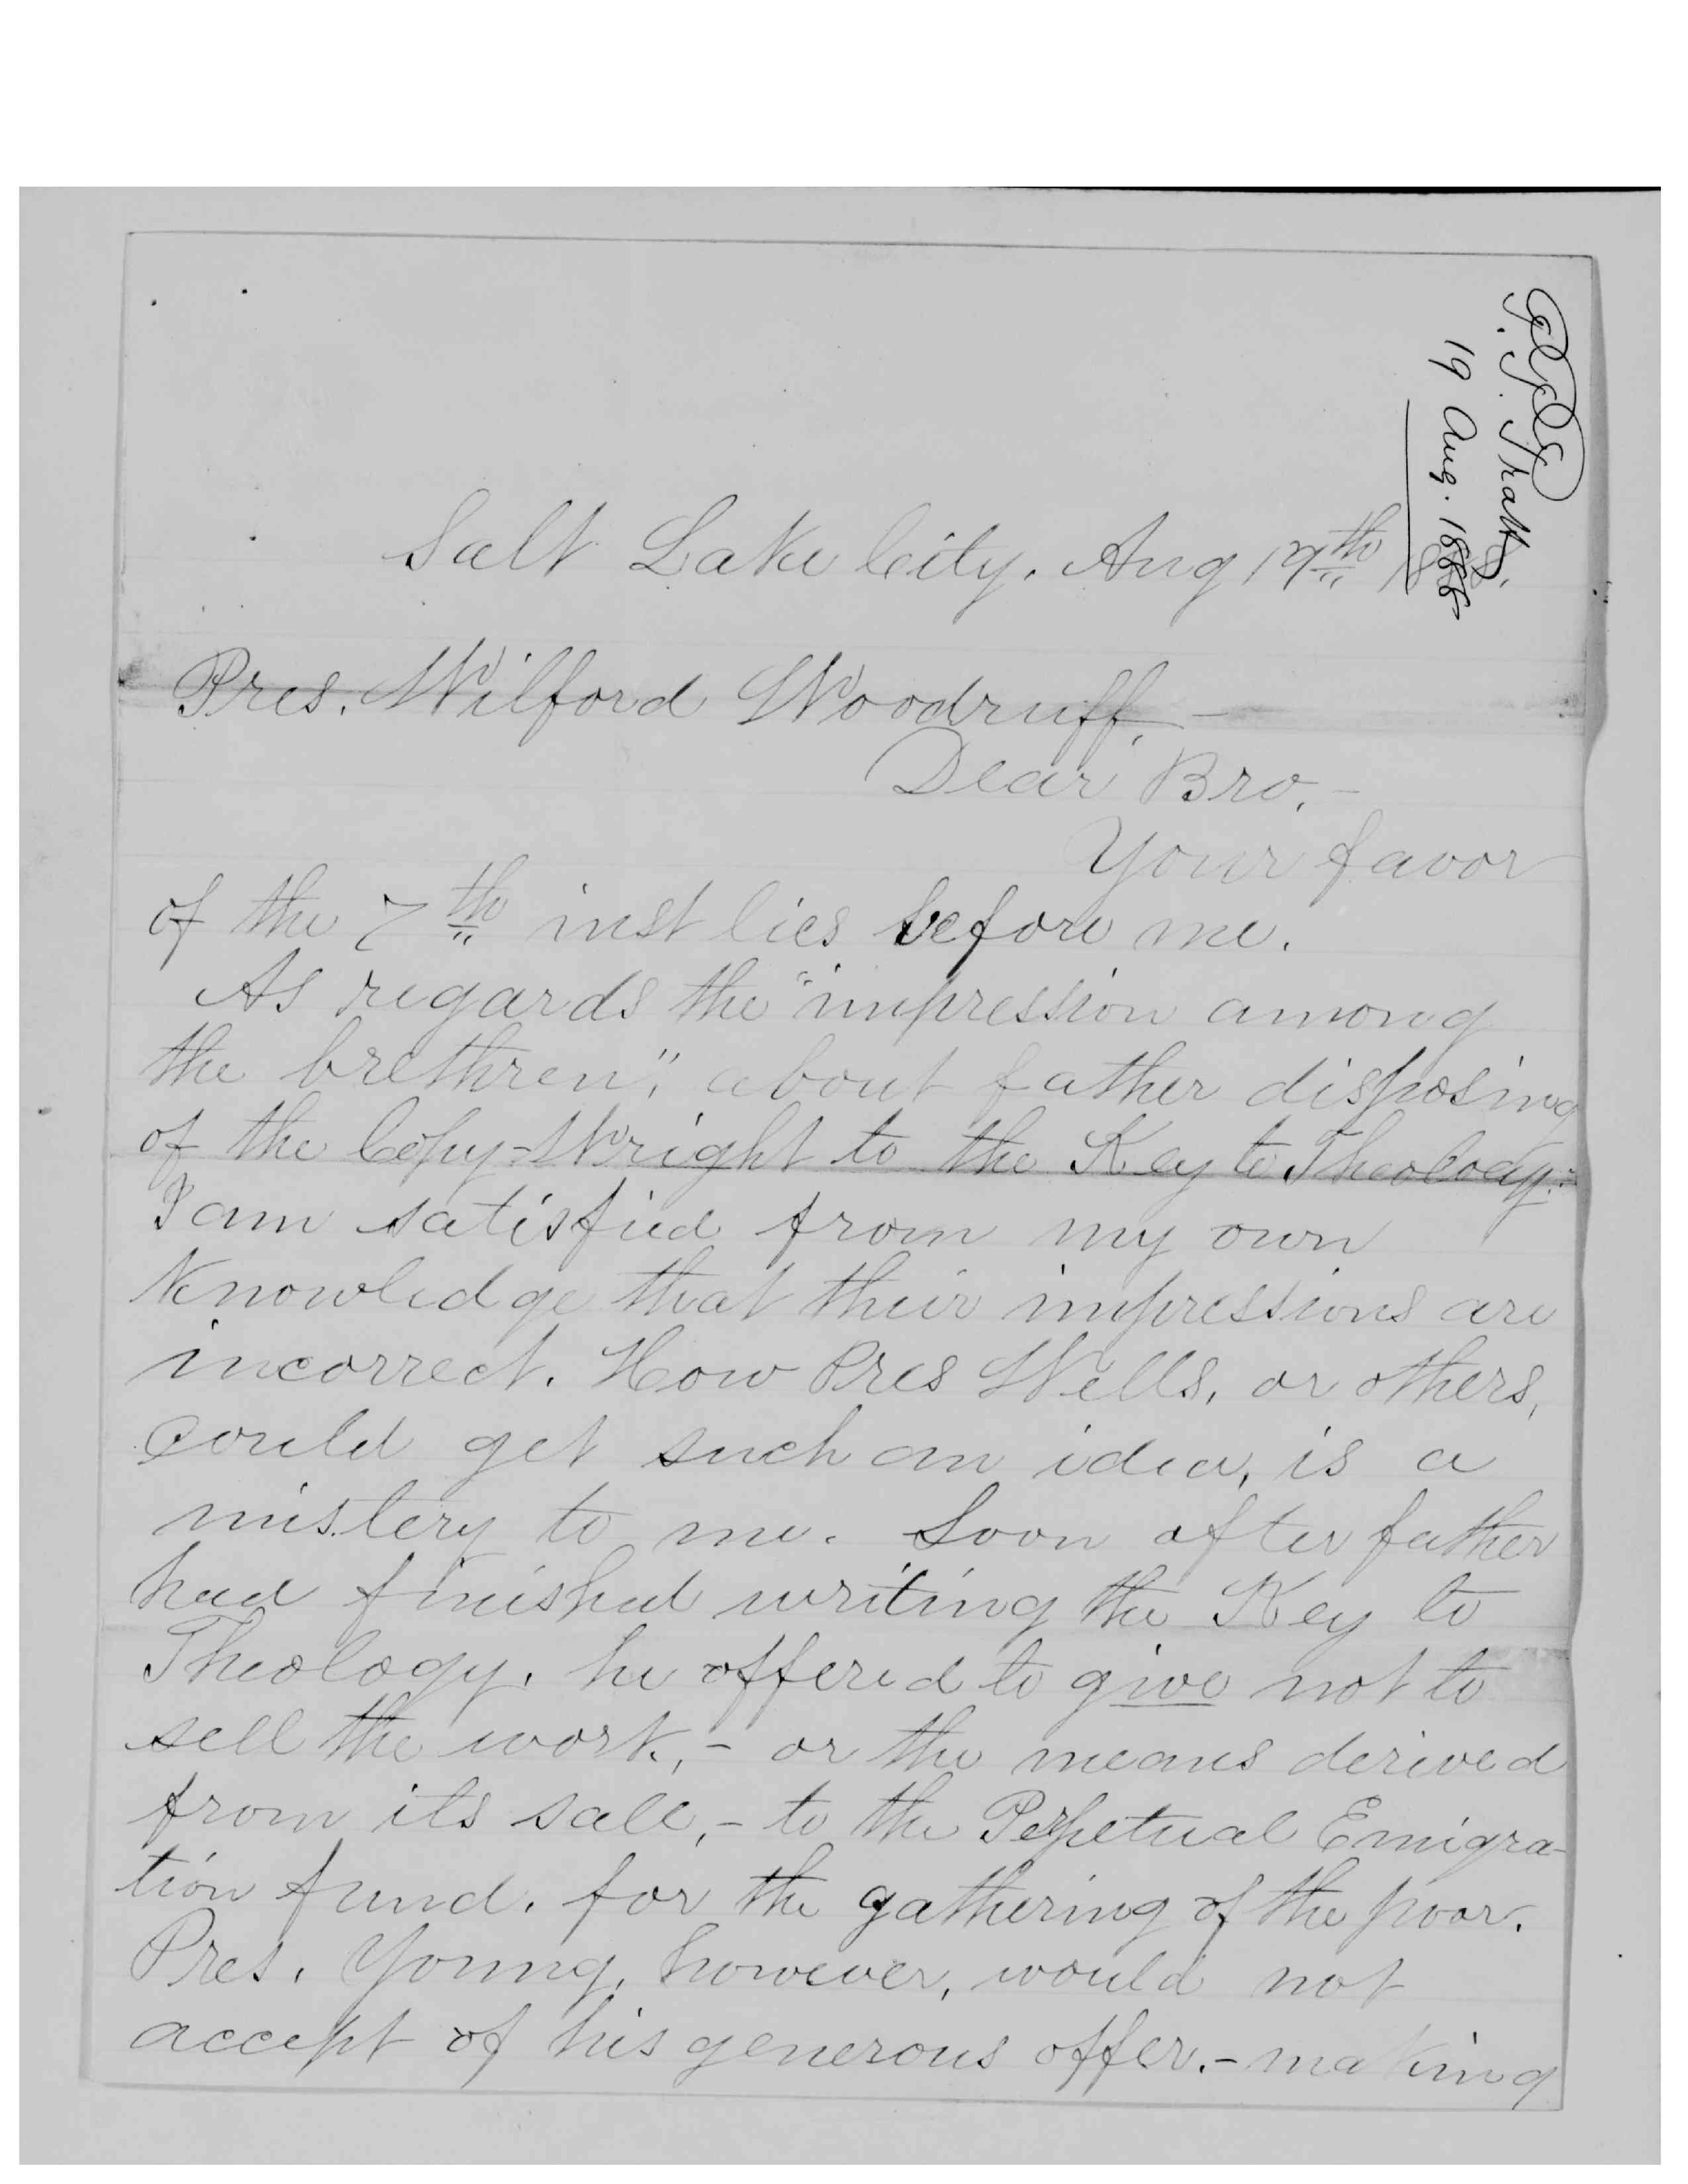 P. P. Pratt
19 Aug. 1888
Salt Lake City. Aug 19th 18
Pres. Wilford Woodruff,-
Dear Bro.-
Your favor
of the 7th inst lies before me.
As regards the "impression among
the brethren", about father disposing
of the Copy-Wright to the Key to Theology:-
I am satisfied from my own
Knowledge that their impressions are
incorrect. How Pres Wells, or others,
could get such an idea, is a
mistery to me. Soon after father
had finished writing the Key to
Theology, he offered to give not to
sell the work,- or the means derived
from its sale,- to the Perpetual Emigra-
tion fund, for the gathering of the poor.
Pres. Young, however, would not
accept of his generous offer.- making